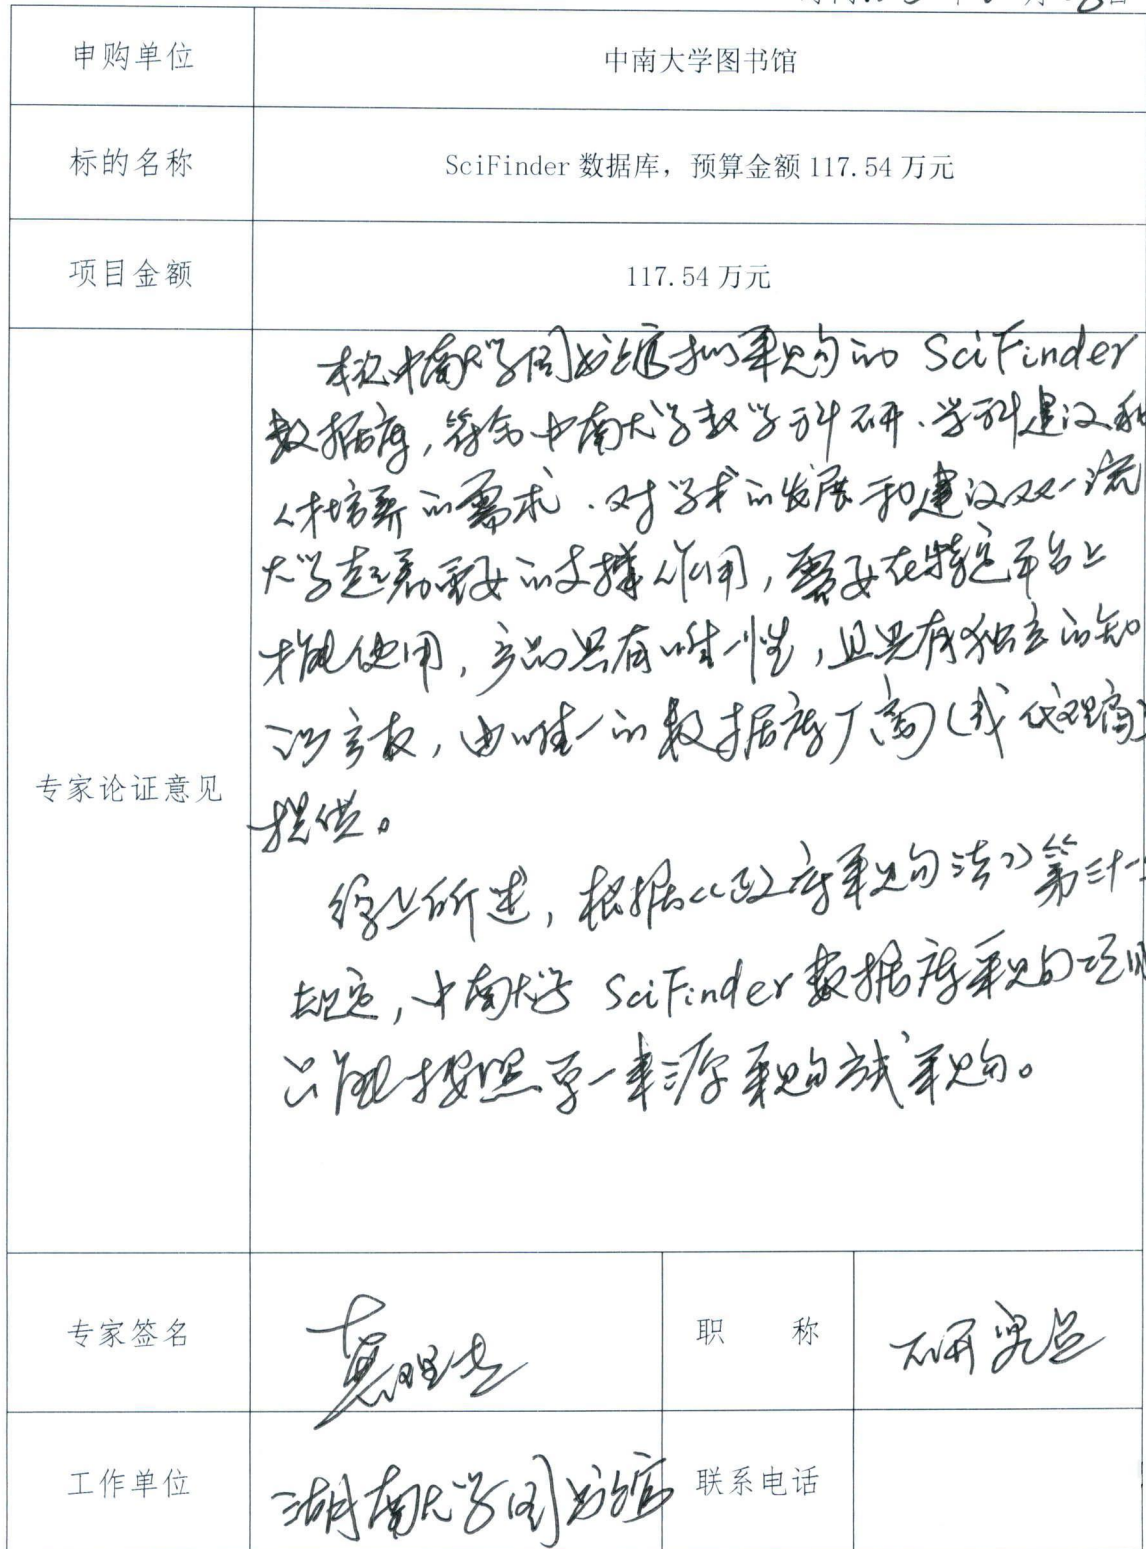 申购单位 中南大学图书馆
标的名称 SciFinder 数据库，预算金额 117.54 万元
项目金额 117.54 万元
专家论证意见
本次中南大学图书馆拟采购的 SciFinder
数据库，符合中南大学教学科研、学科建设和
人才培养的需求、对学术的发展和建设双一流
大学起着重要的支撑作用，需要在特定平台上
才能使用，产品具有唯一性，且具有独立的知
识产权，由唯一的数据库厂商（或代理商）
提供。
综上所述，根据《政府采购法》第三十一
规定，中南大学 SciFinder 数据库采购项目
只能按照单一来源采购方式采购。
专家签名 职 称 研究员
工作单位 湖南大学图书馆 联系电话